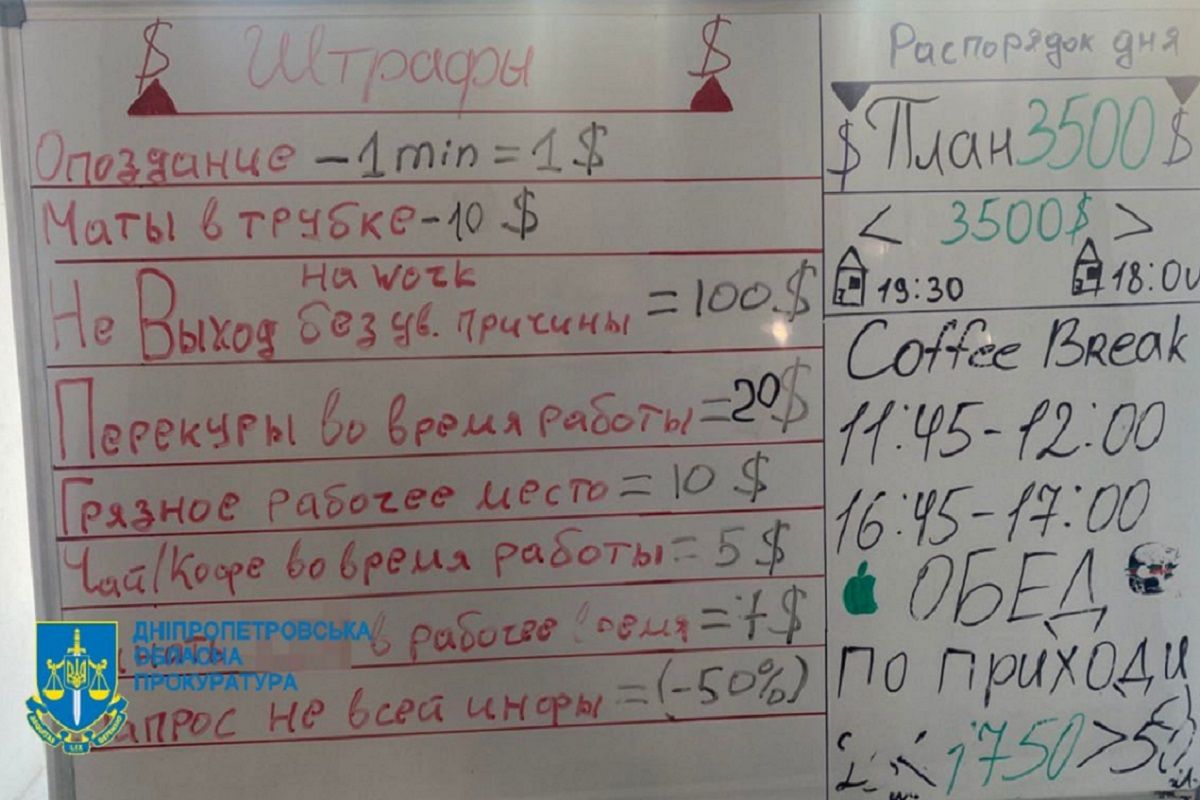 $ Штрафы $
Опоздание - 1 min = 1 $
Маты в трубке - 10 $
на work
Не Выход без ув. причины = 100 $
Перекуры во время работы = 20 $
Грязное рабочее место = 10 $
Чай/Кофе во время работы = 5 $
в рабочее время = $
не всей инфы = (-50%)
ДНІПРОПЕТРОВСЬКА
ОБЛАСНА
ПРОКУРАТУРА
Распорядок дня
$ План 3500 $
< 3500$ >
19:30 18:00
Coffee Break
11:45 - 12:00
16:45 - 17:00
ОБЕД
по приходи
< 1750 >